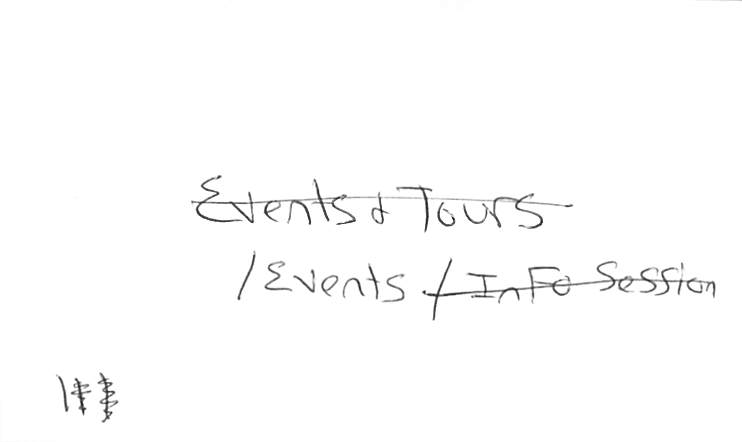 Events & Tours
/Events / Info Session